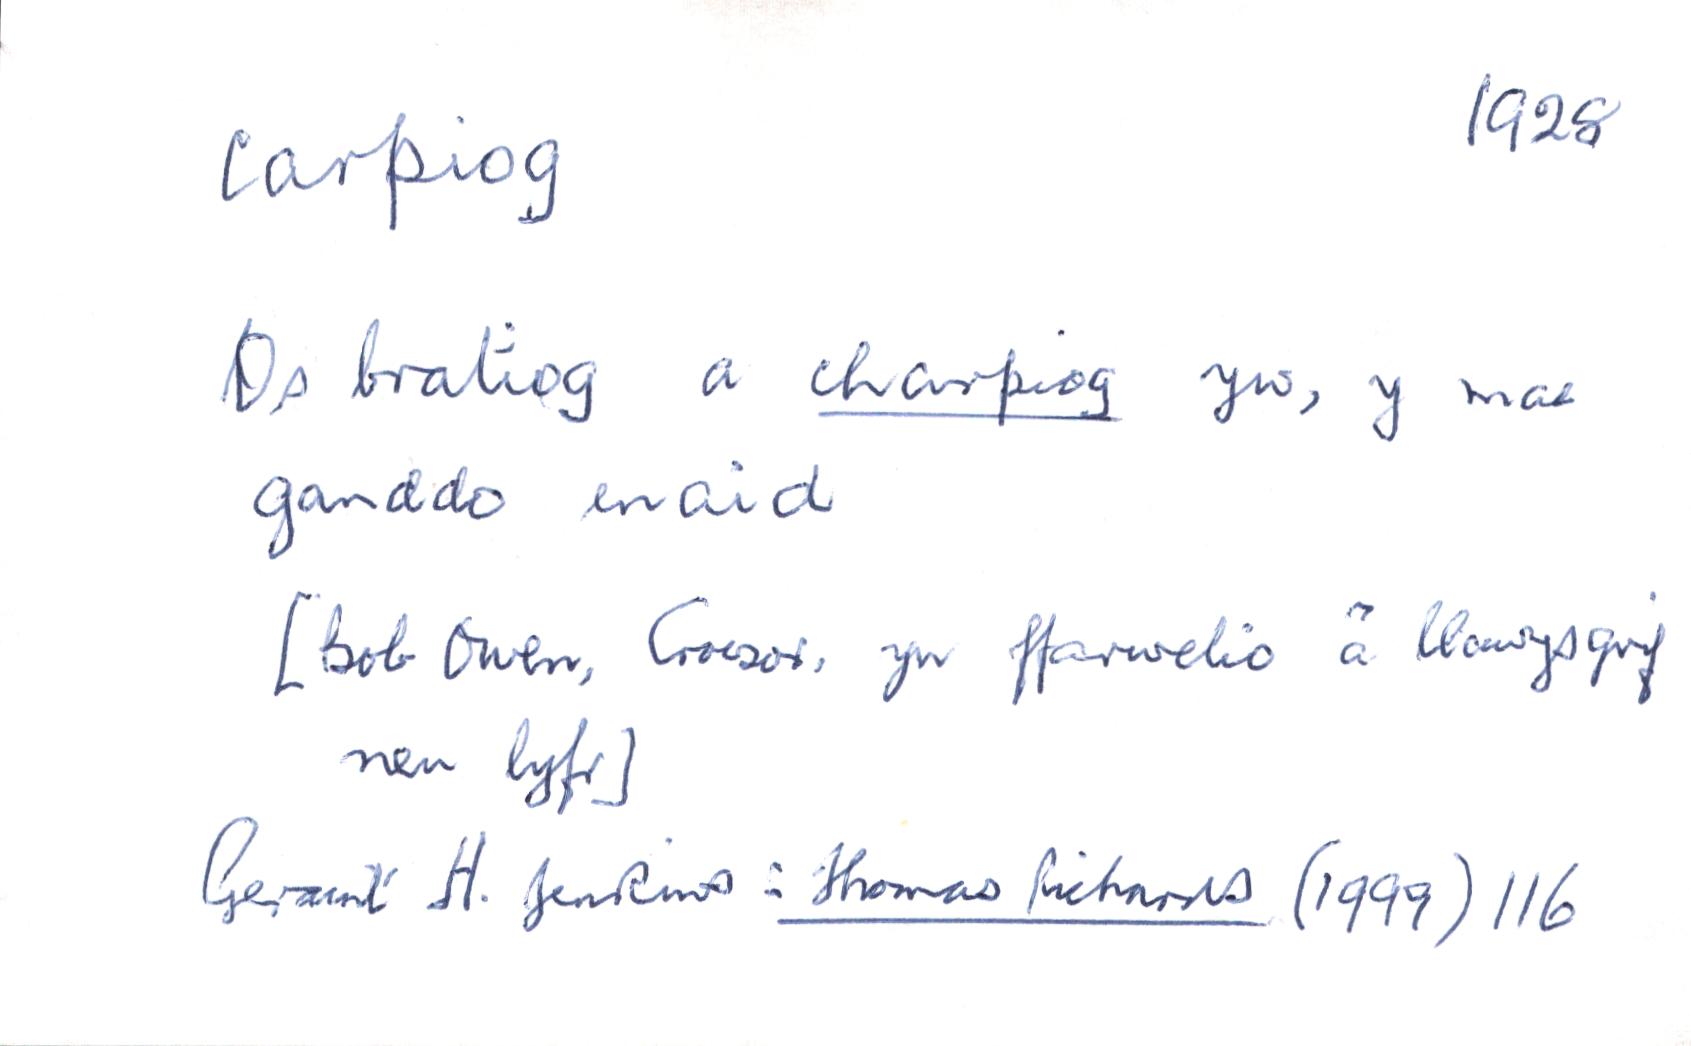 carpiog 1928
Os bratiog a charpiog yw, y mae
ganddo enaid
[Bob Owen, Croesor, yn ffarwelio â llawysgrif
neu lyfr]
Geraint H. Jenkins : Thomas Richards (1999) 116